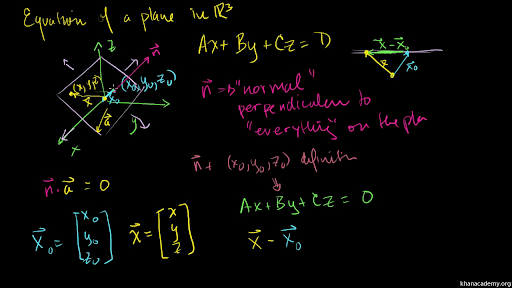 Equation of a plane in ℝ³
Ax + By + Cz = D
z
n⃗
(x, y, z)
(x₀, y₀, z₀)
x⃗
x⃗₀
a⃗
x
y
x⃗ - x⃗₀
x⃗
x⃗₀
n⃗ "normal"
perpendicular to
"everything" on the pla
n⃗ + (x₀, y₀, z₀) definition
⇓
Ax + By + Cz = 0
n⃗ · a⃗ = 0
x⃗₀ = [x₀ y₀ z₀]
x⃗ = [x y z]
x⃗ - x⃗₀
khanacademy.org